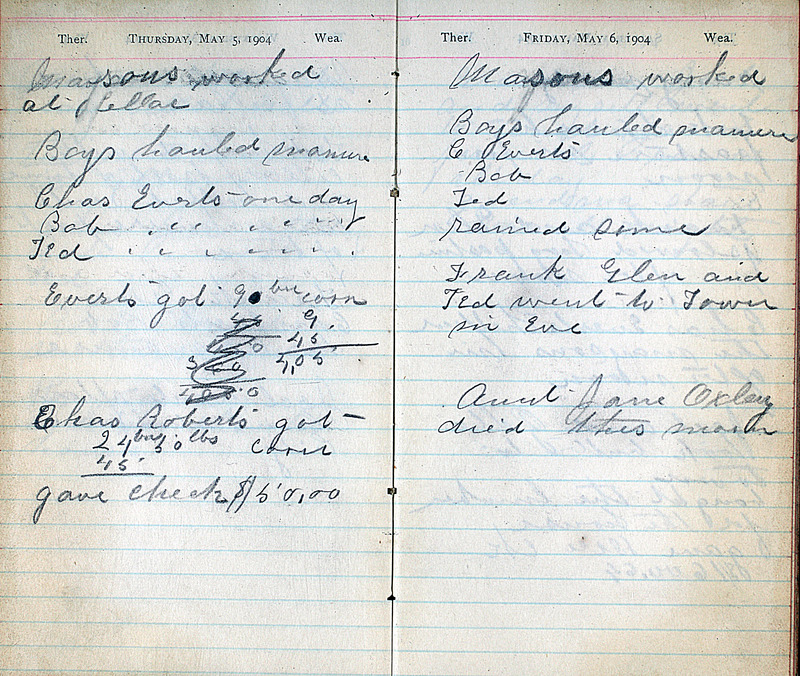 Ther. THURSDAY, MAY 5, 1904 Wea.
Maysons worked
at Cellar
Boys hauled manure
Chas Everts one day
Bob " " " " "
Ted " " " " "
Everts got 9 bu corn
9
45
4,05
Chas Roberts got
24 bu 30 lbs corn
45
gave check $50,00
Ther. FRIDAY, MAY 6, 1904 Wea.
Masons worked
Boys hauled manure
C Everts
Bob
Ted
rained some
Frank Glen and
Ted went to Town
in Eve
Aunt Jane Oxley
died this morn